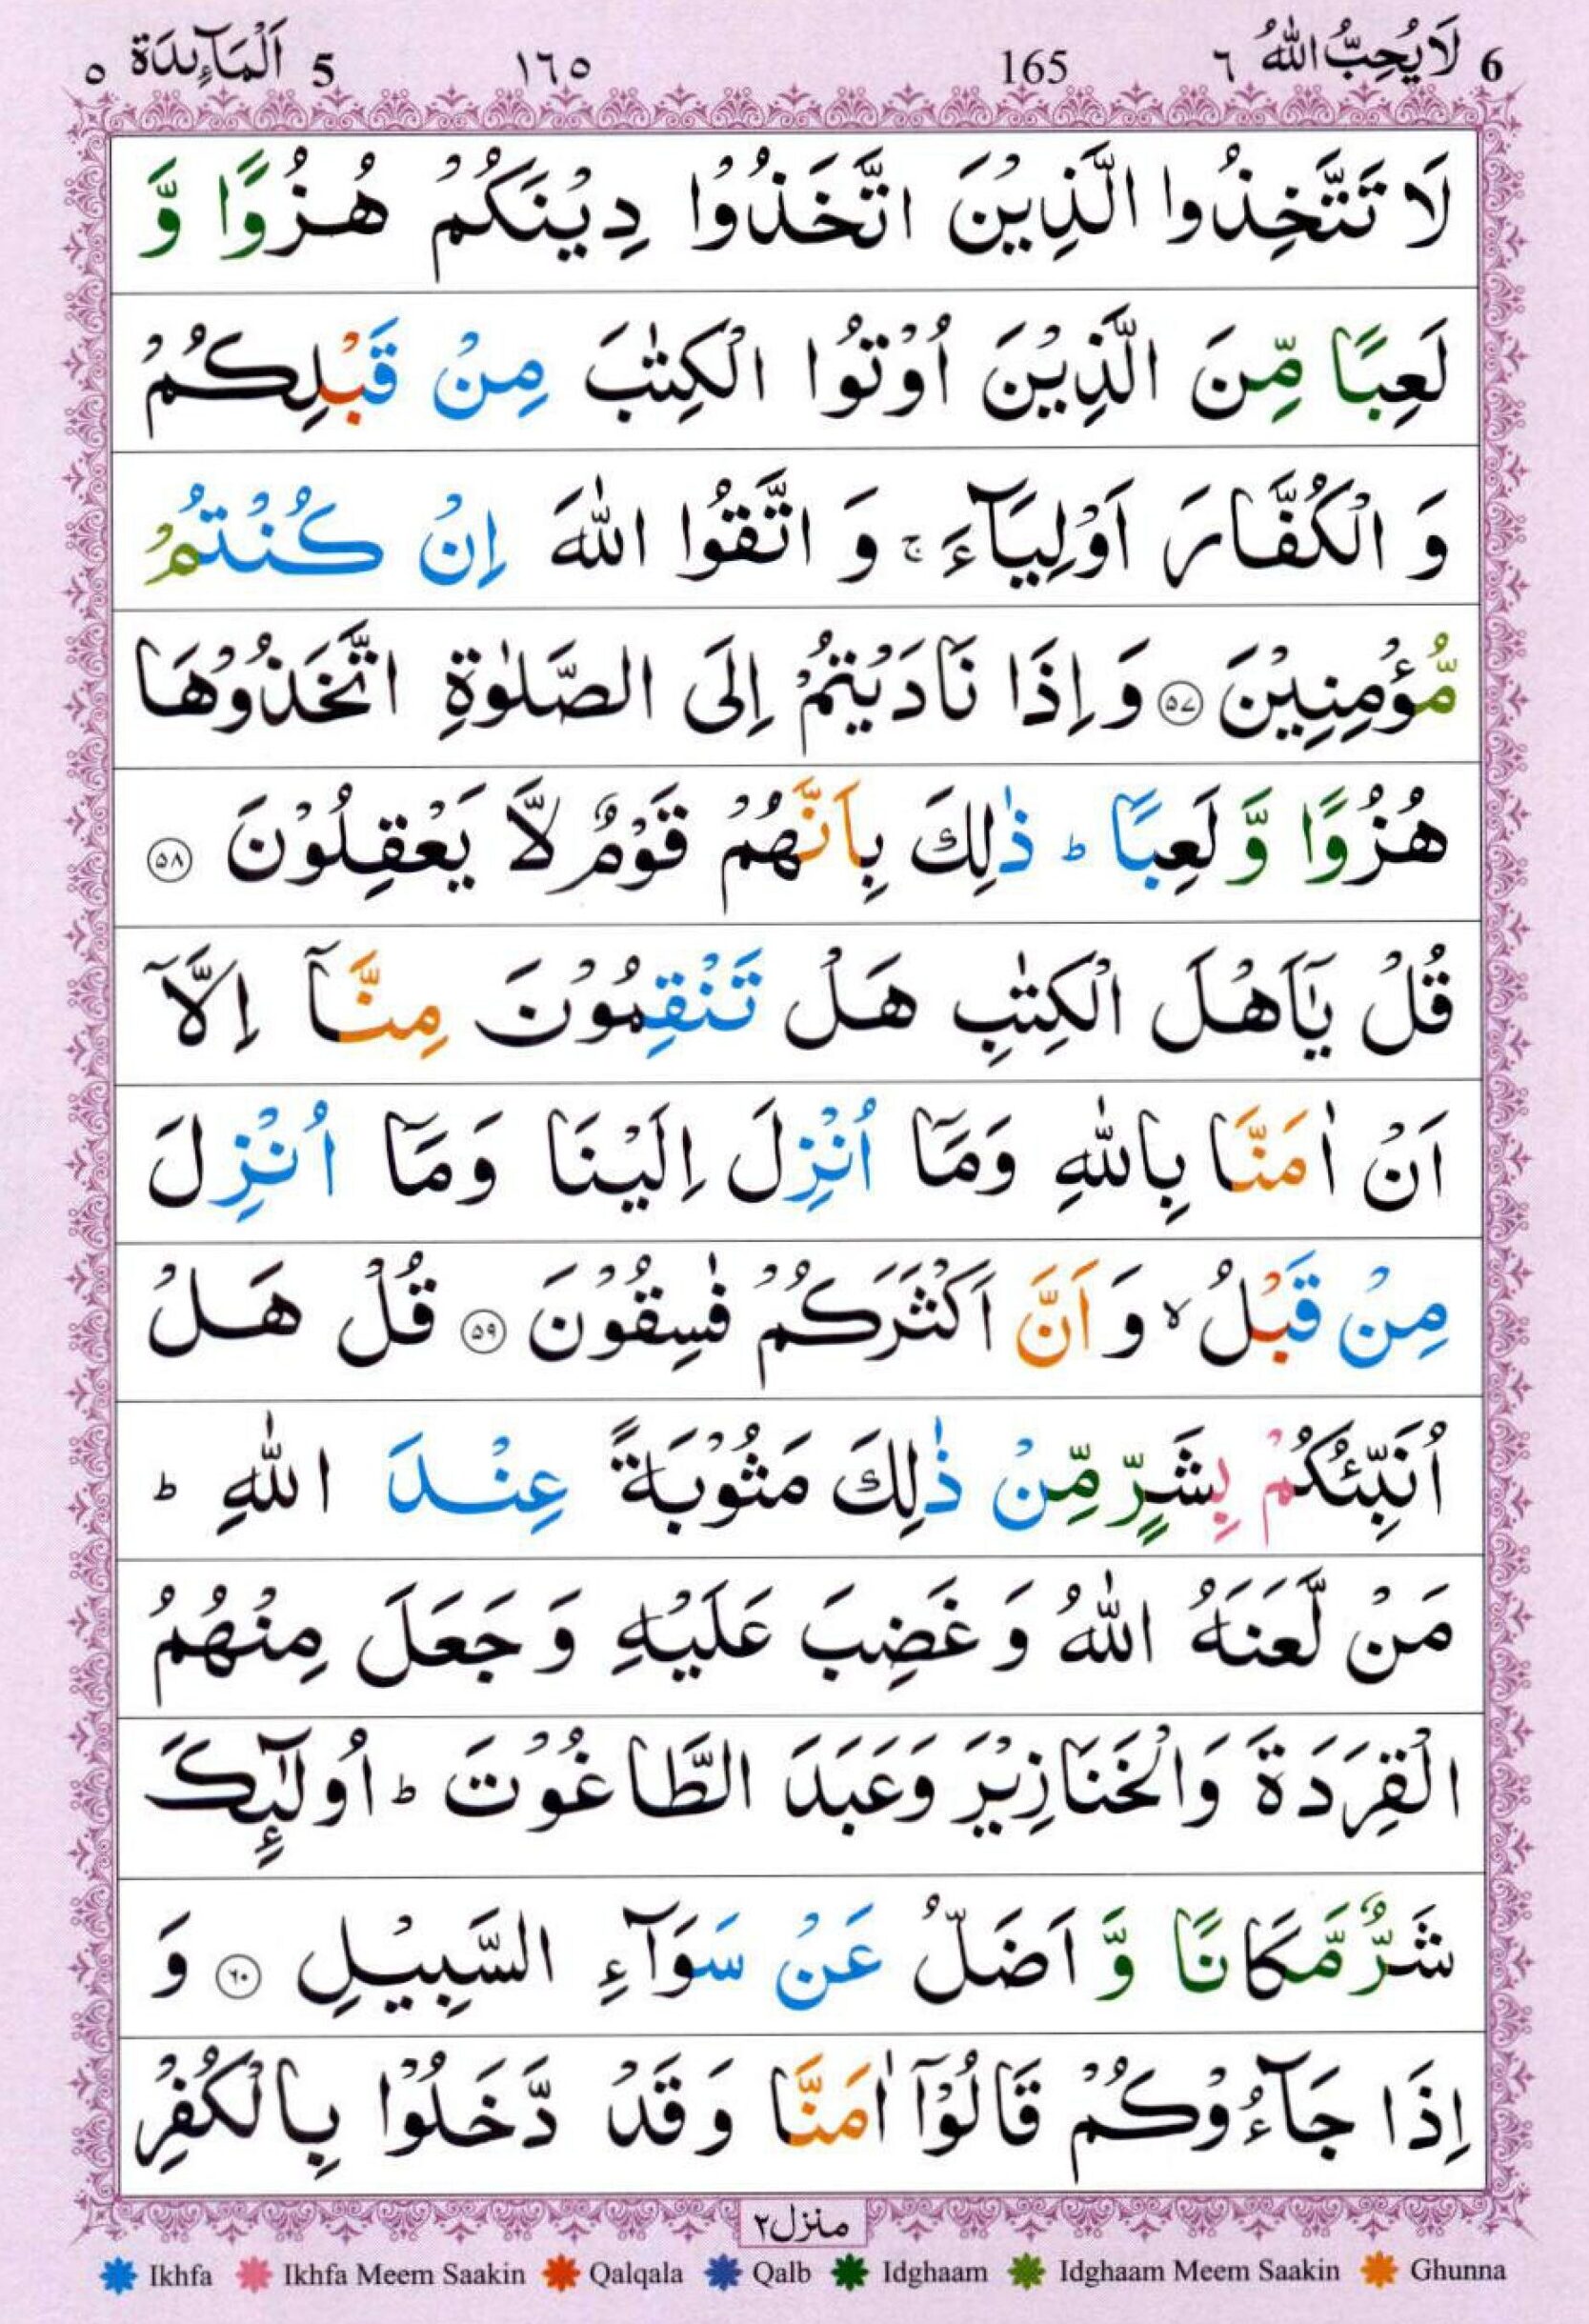 6 لَا يُحِبُّ اللّٰهُ ٦ 165 ١٦٥ 5 اَلْمَآىِٕدَة ٥
لَا تَتَّخِذُوا الَّذِيْنَ اتَّخَذُوْا دِيْنَكُمْ هُزُوًا وَّ
لَعِبًا مِّنَ الَّذِيْنَ اُوْتُوا الْكِتٰبَ مِنْ قَبْلِكُمْ
وَ الْكُفَّارَ اَوْلِيَآءَ ۚ وَ اتَّقُوا اللّٰهَ اِنْ كُنْتُمْ
مُّؤْمِنِيْنَ ۝٥٧ وَ اِذَا نَادَيْتُمْ اِلَى الصَّلٰوةِ اتَّخَذُوْهَا
هُزُوًا وَّ لَعِبًا ؕ ذٰلِكَ بِاَنَّهُمْ قَوْمٌ لَّا يَعْقِلُوْنَ ۝٥٨
قُلْ يٰۤاَهْلَ الْكِتٰبِ هَلْ تَنْقِمُوْنَ مِنَّاۤ اِلَّاۤ
اَنْ اٰمَنَّا بِاللّٰهِ وَمَاۤ اُنْزِلَ اِلَيْنَا وَمَاۤ اُنْزِلَ
مِنْ قَبْلُ ۙ وَ اَنَّ اَكْثَرَكُمْ فٰسِقُوْنَ ۝٥٩ قُلْ هَلْ
اُنَبِّئُكُمْ بِشَرٍّ مِّنْ ذٰلِكَ مَثُوْبَةً عِنْدَ اللّٰهِ ؕ
مَنْ لَّعَنَهُ اللّٰهُ وَ غَضِبَ عَلَيْهِ وَ جَعَلَ مِنْهُمُ
الْقِرَدَةَ وَالْخَنَازِيْرَ وَعَبَدَ الطَّاغُوْتَ ؕ اُولٰٓىِٕكَ
شَرٌّ مَّكَانًا وَّ اَضَلُّ عَنْ سَوَآءِ السَّبِيْلِ ۝٦٠ وَ
اِذَا جَآءُوْكُمْ قَالُوْۤا اٰمَنَّا وَ قَدْ دَّخَلُوْا بِالْكُفْرِ
منزل٢
Ikhfa Ikhfa Meem Saakin Qalqala Qalb Idghaam Idghaam Meem Saakin Ghunna